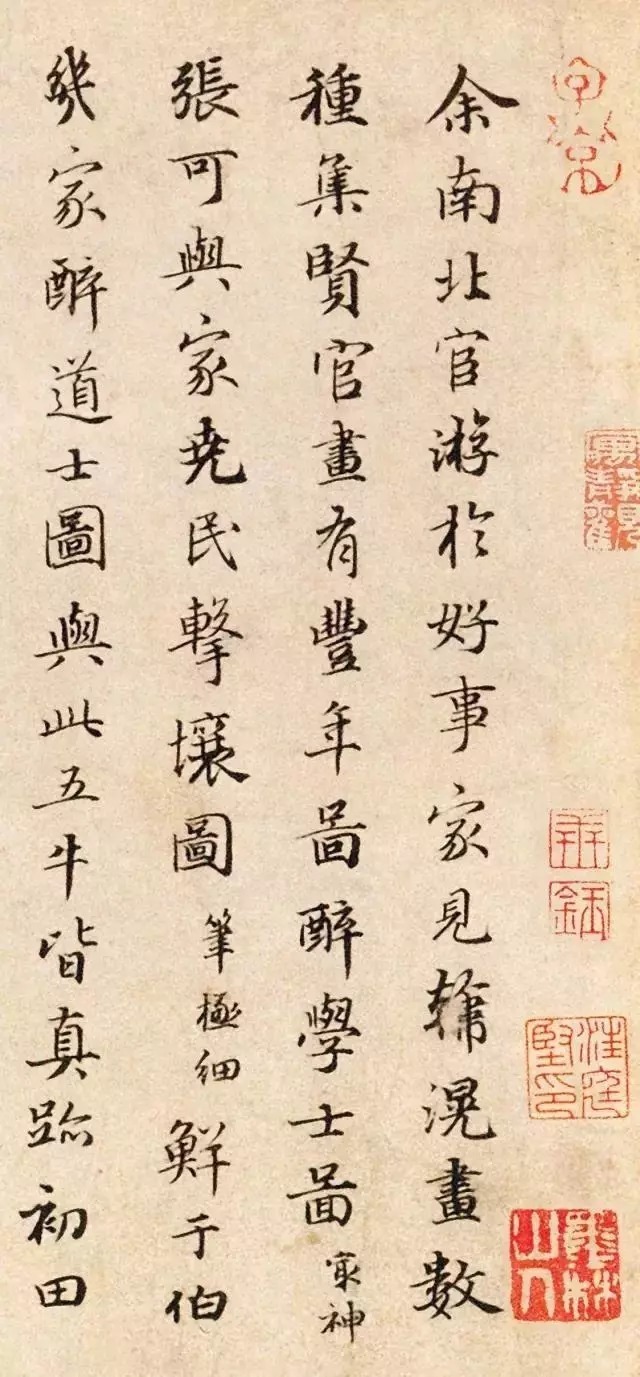 余南北官游於好事家見韓滉畫數
種集賢官畫有豐年啚醉學士啚冣神
張可與家堯民擊壤圖筆極細鮮于伯
幾家醉道士圖與此五牛皆真跡初田
子京
墨林山人